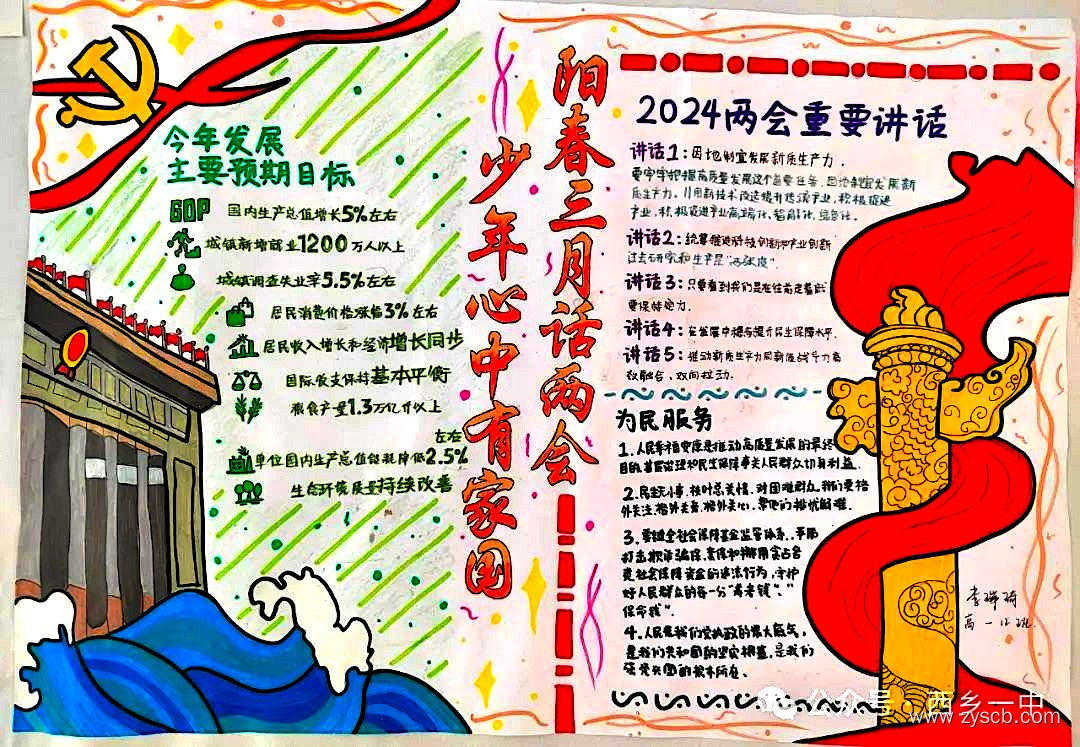 今年发展
主要预期目标
GDP 国内生产总值增长5%左右
城镇新增就业1200万人以上
城镇调查失业率5.5%左右
居民消费价格涨幅3%左右
居民收入增长和经济增长同步
国际收支保持基本平衡
粮食产量1.3万亿斤以上
左右
单位国内生产总值能耗降低2.5%
生态环境质量持续改善
阳春三月话两会
少年心中有家国
2024两会重要讲话
讲话1：因地制宜发展新质生产力.
要牢牢把握高质量发展这个首要任务，因地制宜发展新
质生产力，用新技术改造提升传统产业，积极促进
产业，积极促进产业高端化、智能化、绿色化.
讲话2：统筹推进科技创新和产业创新
过去研究和生产是“两张皮”.
讲话3：只要看到我们是在往前走着
要保持定力.
讲话4：在发展中稳步提升民生保障水平.
讲话5：推动新质生产力同新质战斗力高
效融合、双向拉动.
为民服务
1.人民幸福安康是推动高质量发展的最终
目的，基层治理和民生保障事关人民群众切身利益.
2.民生小事，枝叶总关情.对困难群众，我们要格
外关注、格外关爱、格外关心，帮他们排忧解难.
3.要健全社会保障基金监管体系，严厉
打击欺诈骗保、套保和挪用贪占各
类社会保障资金的违法行为，守护
好人民群众的每一分“养老钱”、“
保命钱”.
4.人民是我们党执政的最大底气，
是我们共和国的坚实根基，是我们
强党兴国的根本所在.
李
高一12班.
公众号 · 西乡一中
www.zyscb.com